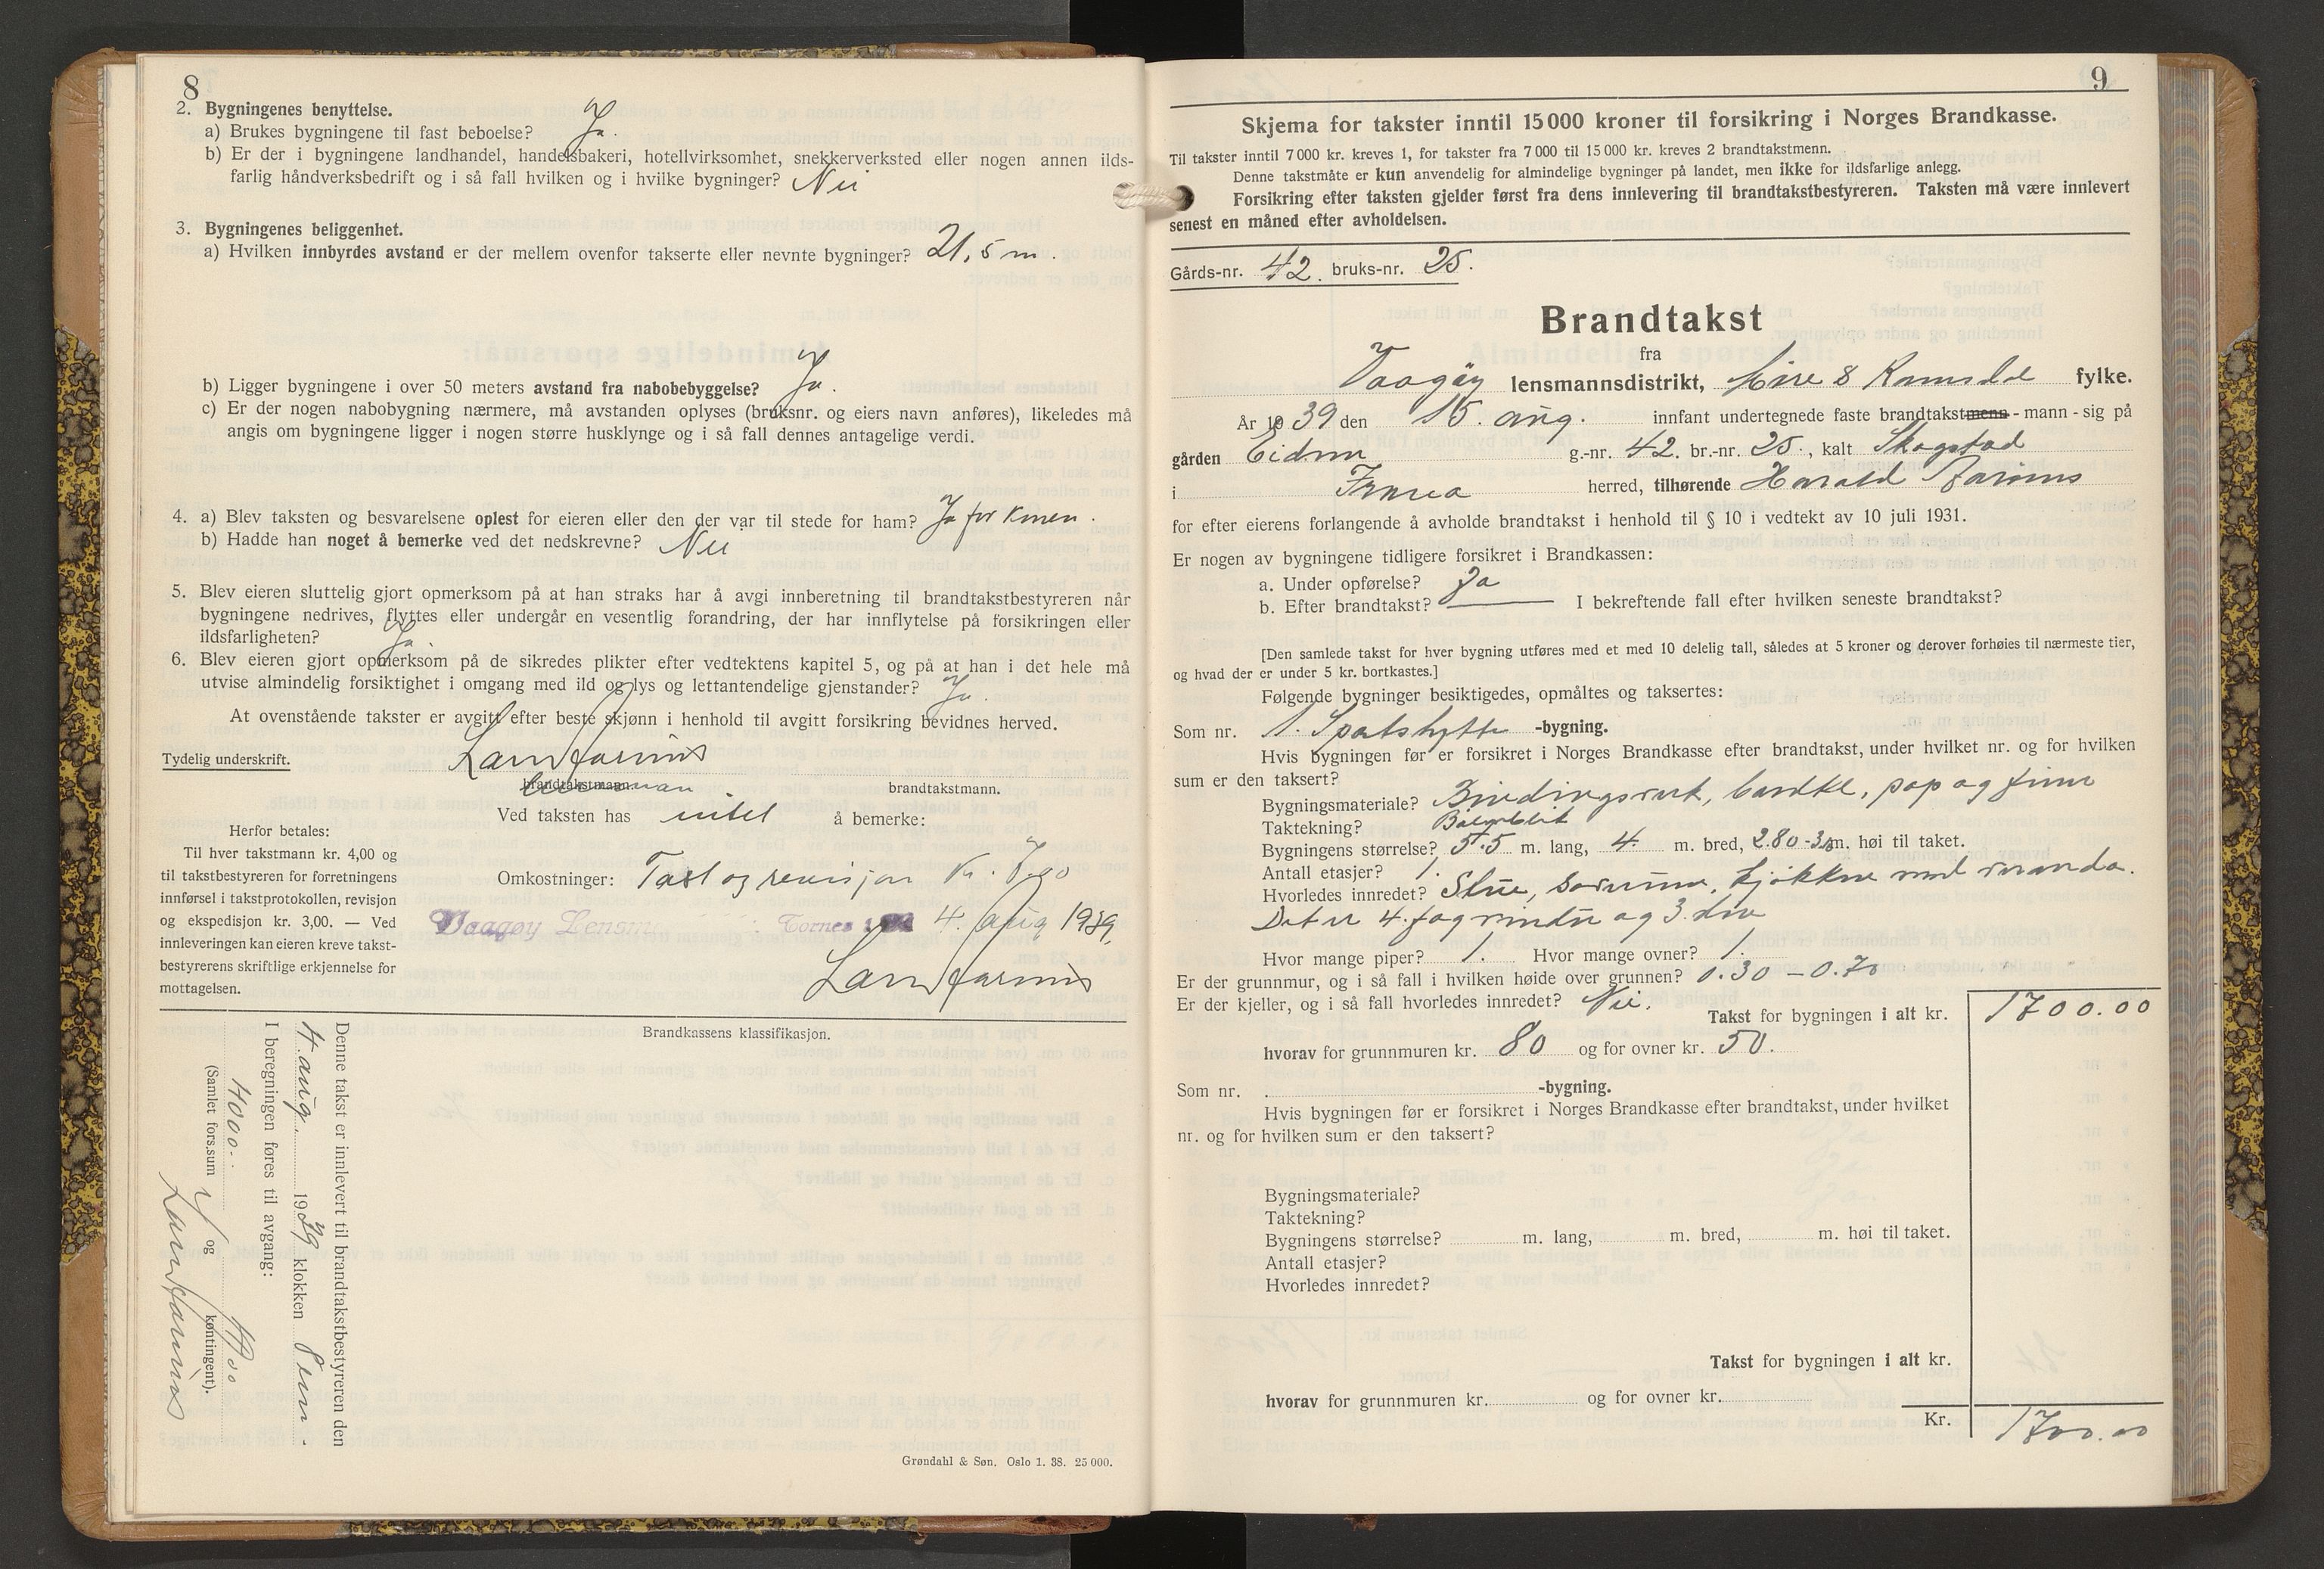 8
2. Bygningenes benyttelse.
a) Brukes bygningene til fast beboelse? Ja.
b) Er der i bygningene landhandel, handelsbakeri, hotellvirksomhet, snekkerverksted eller nogen annen ilds-
farlig håndverksbedrift og i så fall hvilken og i hvilke bygninger? Nei
3. Bygningenes beliggenhet.
a) Hvilken innbyrdes avstand er der mellem ovenfor takserte eller nevnte bygninger? 21,5 m.
b) Ligger bygningene i over 50 meters avstand fra nabobebyggelse? Ja.
c) Er der nogen nabobygning nærmere, må avstanden oplyses (bruksnr. og eiers navn anføres), likeledes må
angis om bygningene ligger i nogen større husklynge og i så fall dennes antagelige verdi.
4. a) Blev taksten og besvarelsene oplest for eieren eller den der var til stede for ham? Ja for konen.
b) Hadde han noget å bemerke ved det nedskrevne? Nei
5. Blev eieren sluttelig gjort opmerksom på at han straks har å avgi innberetning til brandtakstbestyreren når
bygningene nedrives, flyttes eller undergår en vesentlig forandring, der har innflytelse på forsikringen eller
ildsfarligheten? Ja.
6. Blev eieren gjort opmerksom på de sikredes plikter efter vedtektens kapitel 5, og på at han i det hele må
utvise almindelig forsiktighet i omgang med ild og lys og lettantendelige gjenstander? Ja.
At ovenstående takster er avgitt efter beste skjønn i henhold til avgitt forsikring bevidnes herved.
Tydelig underskrift.
brandtakstmann. brandtakstmann.
Ved taksten has intet å bemerke:
Herfor betales:
Til hver takstmann kr. 4,00 og
til takstbestyreren for forretningens
innførsel i takstprotokollen, revisjon
og ekspedisjon kr. 3,00. — Ved
innleveringen kan eieren kreve takst-
bestyrerens skriftlige erkjennelse for
mottagelsen.
Omkostninger: Takst og revisjon Kr. 7.00
Vaagøy Lensm Tornes 4. aug 1939.
Brandkassens klassifikasjon.
Denne takst er innlevert til brandtakstbestyreren den
4 aug. 1939 klokken
I beregningen føres til avgang:
4000.
(Samlet fors.sum og kontingent).
Grøndahl & Søn. Oslo 1. 38. 25 000.
9
Skjema for takster inntil 15 000 kroner til forsikring i Norges Brandkasse.
Til takster inntil 7 000 kr. kreves 1, for takster fra 7 000 til 15 000 kr. kreves 2 brandtakstmenn.
Denne takstmåte er kun anvendelig for almindelige bygninger på landet, men ikke for ildsfarlige anlegg.
Forsikring efter taksten gjelder først fra dens innlevering til brandtakstbestyreren. Taksten må være innlevert
senest en måned efter avholdelsen.
Gårds-nr. 42. bruks-nr. 25.
Brandtakst
fra
Vaagøy lensmannsdistrikt, Møre & Romsdal fylke.
År 1939 den 15. aug. innfant undertegnede faste brandtakstmenn - mann - sig på
gården Eidem g.-nr. 42. br.-nr. 25., kalt Skogstad
i Fræna herred, tilhørende Harald
for efter eierens forlangende å avholde brandtakst i henhold til § 10 i vedtekt av 10 juli 1931.
Er nogen av bygningene tidligere forsikret i Brandkassen:
a. Under opførelse? Ja
b. Efter brandtakst? — I bekreftende fall efter hvilken seneste brandtakst?
[Den samlede takst for hver bygning utføres med et med 10 delelig tall, således at 5 kroner og derover forhøies til nærmeste tier,
og hvad der er under 5 kr. bortkastes.]
Følgende bygninger besiktigedes, opmåltes og taksertes:
Som nr. 1. Sportshytte -bygning.
Hvis bygningen før er forsikret i Norges Brandkasse efter brandtakst, under hvilket nr. og for hvilken
sum er den taksert?
Bygningsmateriale? Bindingsverk, bordkl., pap og
Taktekning?
Bygningens størrelse? 5.5 m. lang, 4. m. bred, 2.80-3 m. høi til taket.
Antall etasjer? 1.
Hvorledes innredet? Stue, soverum, kjøkken med veranda.
Det er 4. fag vindu og 3. dør
Hvor mange piper? 1. Hvor mange ovner? 1.
Er der grunnmur, og i så fall i hvilken høide over grunnen? 0.30 – 0.70
Er der kjeller, og i så fall hvorledes innredet? Nei.
Takst for bygningen i alt kr. 1700.00
hvorav for grunnmuren kr. 80 og for ovner kr. 50.
Som nr. -bygning.
Hvis bygningen før er forsikret i Norges Brandkasse efter brandtakst, under hvilket
nr. og for hvilken sum er den taksert?
Bygningsmateriale?
Taktekning?
Bygningens størrelse? m. lang, m. bred, m. høi til taket.
Antall etasjer?
Hvorledes innredet?
Takst for bygningen i alt kr.
hvorav for grunnmuren kr. og for ovner kr.
Kr. 1700.00